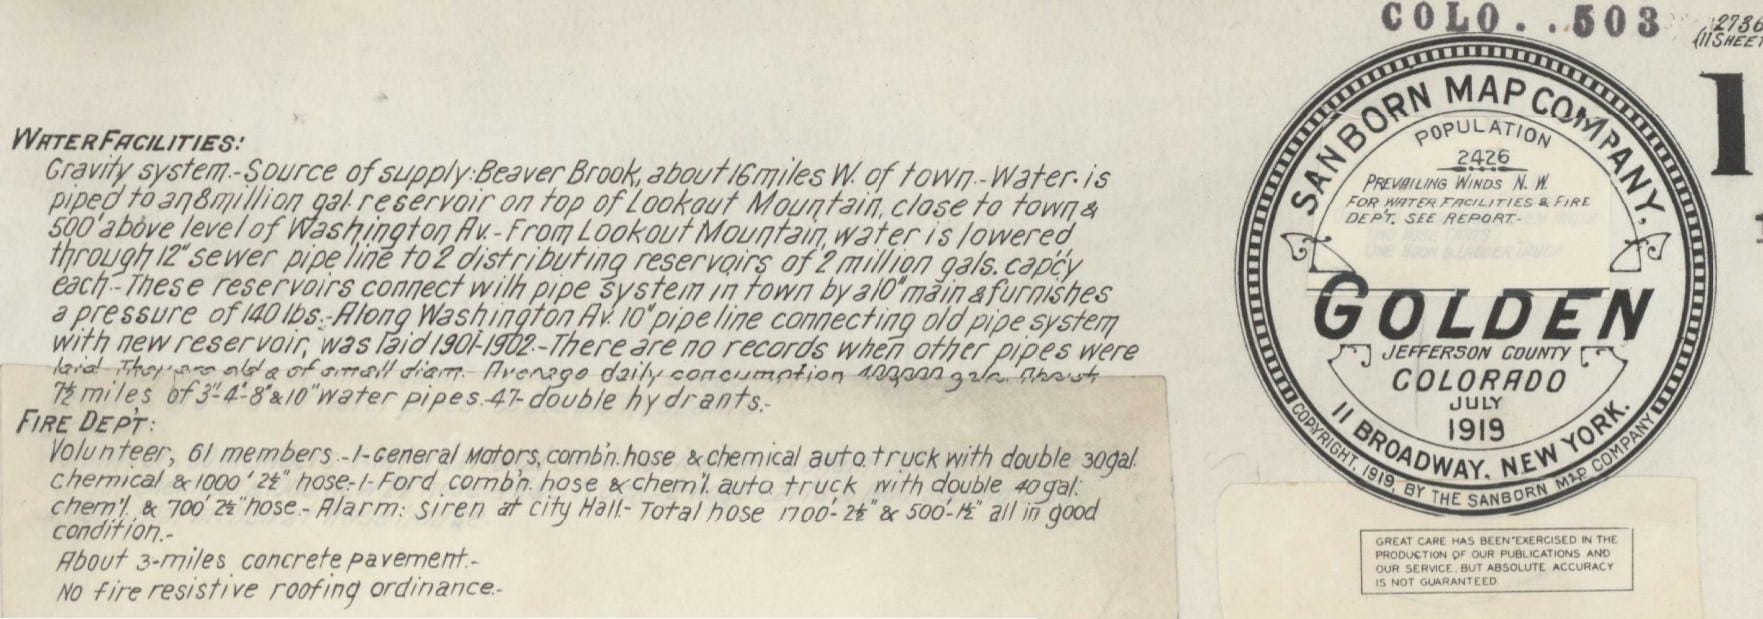 COLO..503
2736
(11 SHEET
1
WATER FACILITIES:
Gravity system.-Source of supply: Beaver Brook, about 16 miles W. of town.-Water is
piped to an 8 million gal. reservoir on top of Lookout Mountain, close to town &
500' above level of Washington Av.-From Lookout Mountain, water is lowered
through 12" sewer pipe line to 2 distributing reservoirs of 2 million gals. cap'c'y
each.-These reservoirs connect with pipe system in town by a 10" main & furnishes
a pressure of 140 lbs.-Along Washington Av. 10" pipe line connecting old pipe system
with new reservoir, was laid 1901-1902.-There are no records when other pipes were
laid. They are old & of small diam. Average daily consumption 400,000 gals. About
7½ miles of 3"-4"-8" & 10" water pipes.-47-double hydrants.-
FIRE DEP'T:
Volunteer, 61 members.-1-General Motors, comb'n. hose & chemical auto. truck with double 30 gal.
chemical & 1000' 2½" hose-1-Ford comb'n. hose & chem'l. auto truck with double 40 gal.
chem'l. & 700' 2½" hose.-Alarm: siren at city Hall.-Total hose 1700'-2½" & 500'-1½" all in good
condition.-
About 3-miles concrete pavement.-
No fire resistive roofing ordinance.-
SANBORN MAP COMPANY,
POPULATION
2426
PREVAILING WINDS N. W.
FOR WATER FACILITIES & FIRE
DEP'T, SEE REPORT.-
GOLDEN
JEFFERSON COUNTY
COLORADO
JULY
1919
11 BROADWAY, NEW YORK.
COPYRIGHT, 1919, BY THE SANBORN MAP COMPANY
GREAT CARE HAS BEEN EXERCISED IN THE
PRODUCTION OF OUR PUBLICATIONS AND
OUR SERVICE, BUT ABSOLUTE ACCURACY
IS NOT GUARANTEED